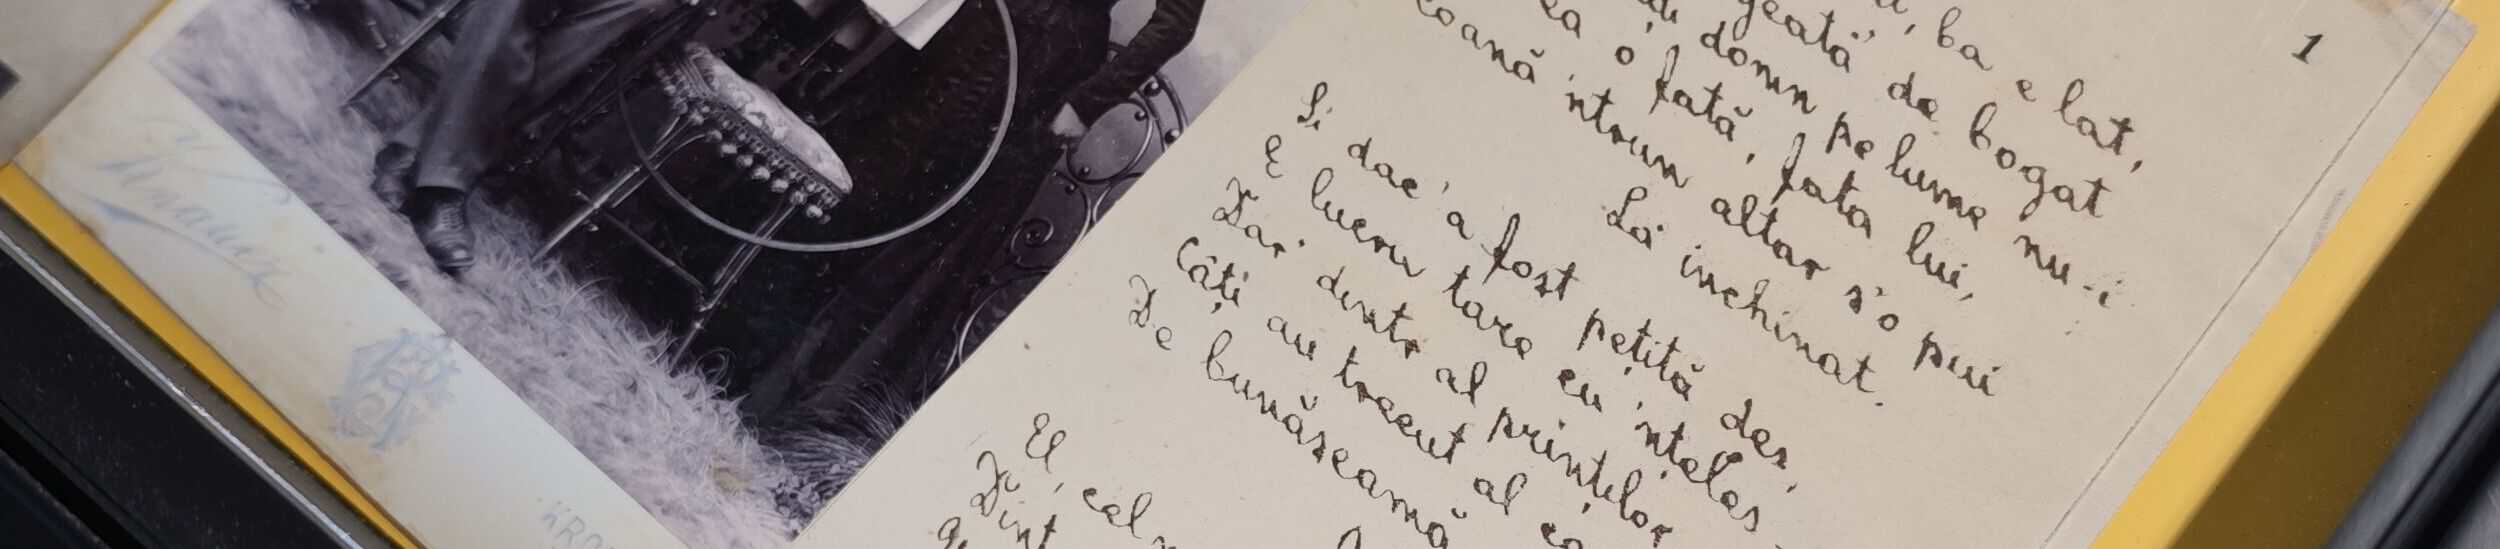 ba e lat,
geată" de bogat
domn pe lume nu-i
o fată, fata lui,
coană 'ntrun altar s'o pui
La inchinat.
Și dac'a fost pețită des,
E lucru tare cu 'nțeles
Dar dintr al prinților
Câți au trecut al ca
De bunăseamă
El, cel
Dint
1